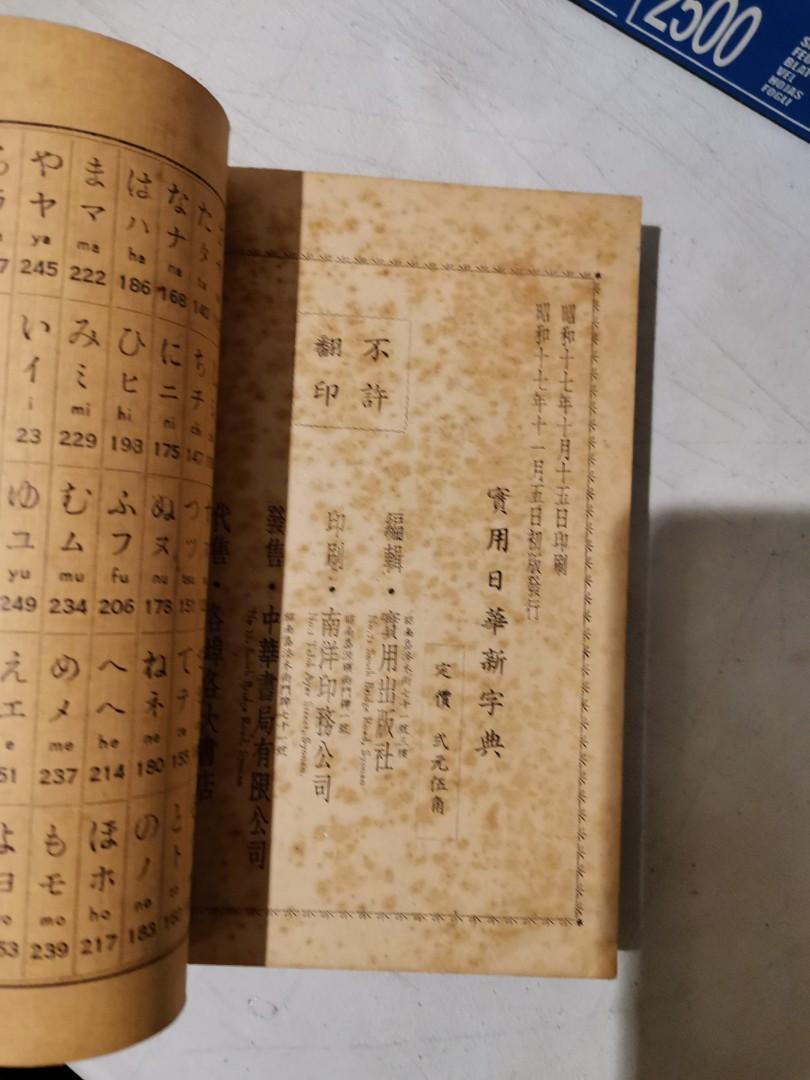 や ま は な た
ヤ マ ハ ナ タ
ya ma ha na ta
245 222 186 168 140
い み ひ に ち
イ ミ ヒ ニ チ
i mi hi ni ch
23 229 193 175 147
ゆ む ふ ぬ つ
ユ ム フ ヌ ツ
yu mu fu nu tsu
249 234 206 178 151
え め へ ね て
エ メ ヘ ネ テ
e me he ne te
51 237 214 180 155
よ も ほ の と
ヨ モ ホ ノ ト
mo ho no to
53 239 217 183 160
昭和十七年十月十五日印刷
昭和十七年十一月五日初版發行
實用日華新字典
定價 弍元伍角
不許
翻印
編輯・實用出版社
No 71 South Bridge Road, Syonan
印刷・南洋印務公司
No. 1 Telok Ayer Street, Syonan
發售・中華書局有限公司
South Bridge Road, Syonan
代售・各埠各大書店
2500